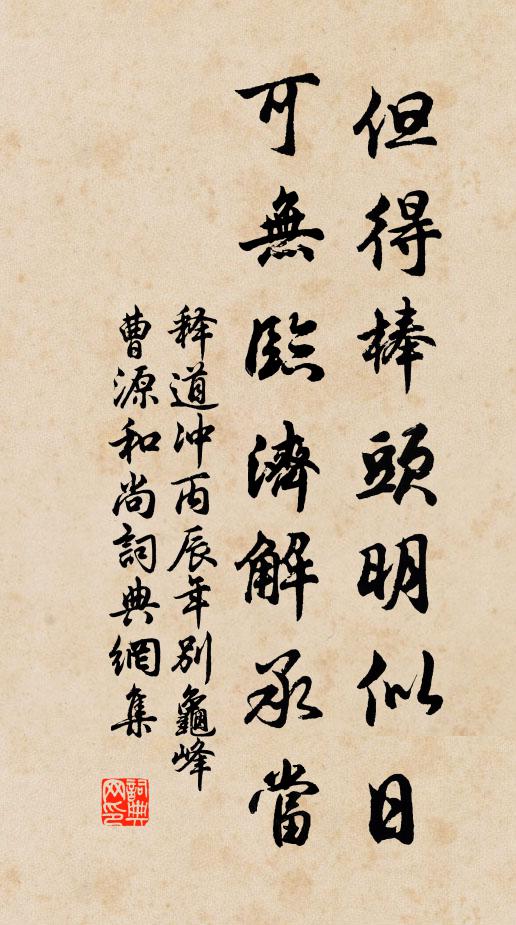 但得棒頭明似日
可無臨濟解承當
释道沖丙辰年別龜峰
曹源和尚詞典網集
詞典
网印